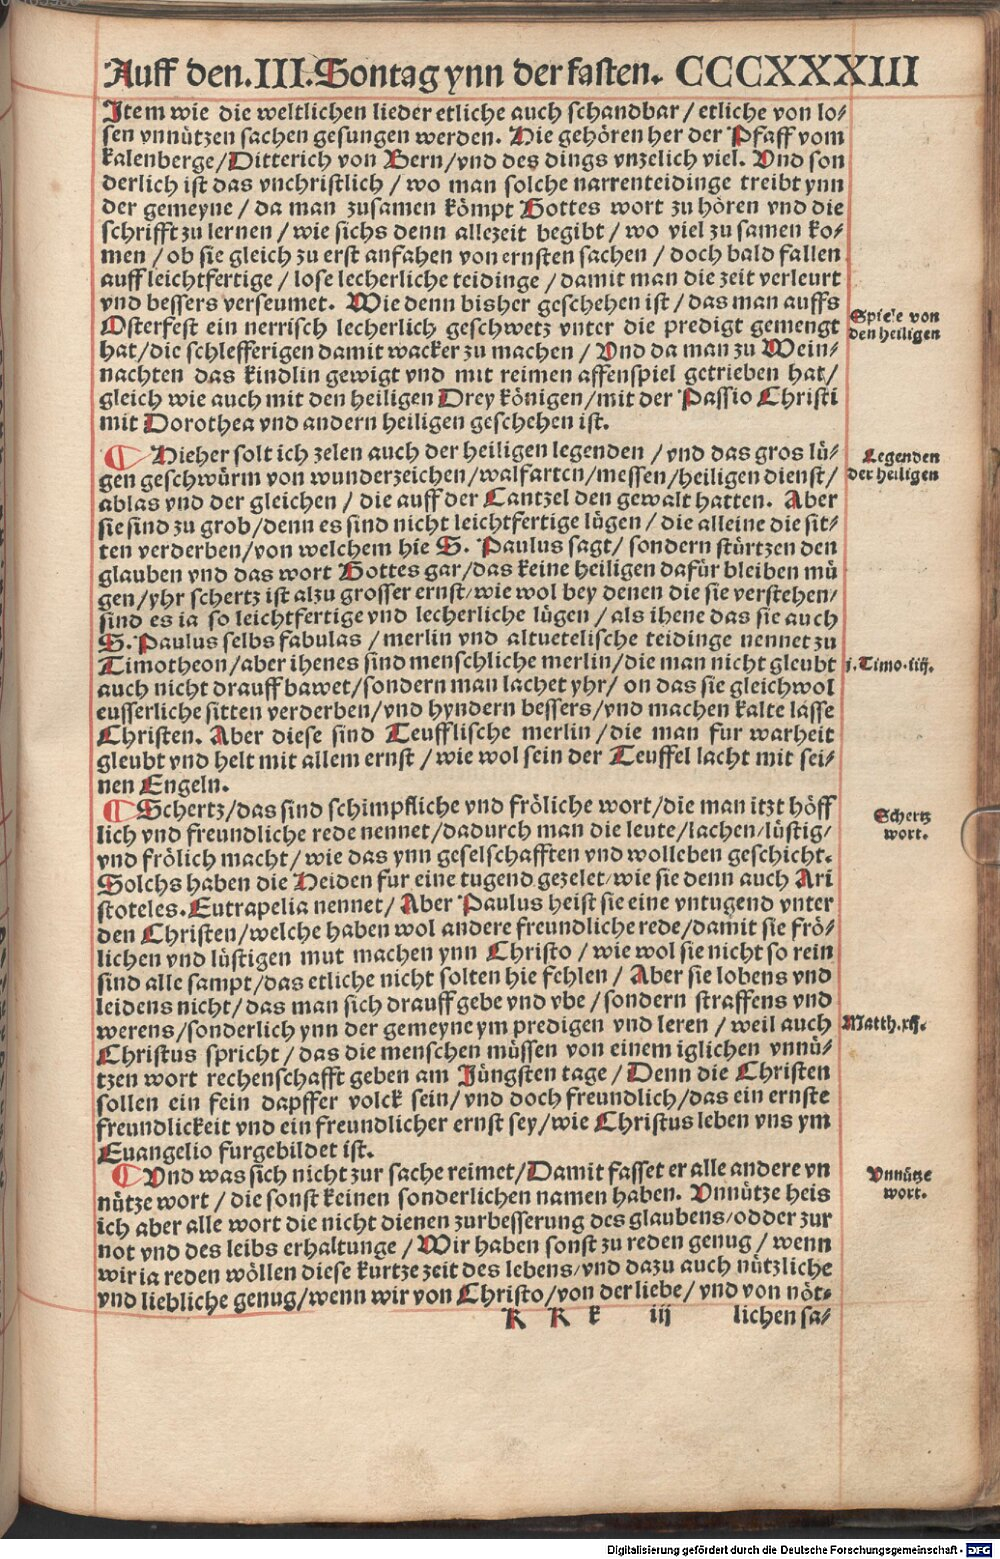 Auff den.III.Sontag ynn der fasten. CCCXXXXIII
Item wie die weltlichen lieder etliche auch schandbar / etliche von lo⸗
sen vnnützen sachen gesungen werden. Hie gehören her der Pfaff vom
kalenberge/Ditterich von Bern/vnd des dings vnzelich viel. Vnd son
derlich ist das vnchristlich / wo man solche narrenteidinge treibt ynn
der gemeyne / da man zusamen kömpt Gottes wort zu hören vnd die
schrifft zu lernen / wie sichs denn allezeit begibt / wo viel zu samen ko⸗
men / ob sie gleich zu erst anfahen von ernsten sachen / doch bald fallen
auff leichtfertige / lose lecherliche teidinge / damit man die zeit verleurt
vnd bessers verseumet. Wie denn bisher geschehen ist / das man auffs
Osterfest ein nerrisch lecherlich geschwetz vnter die predigt gemengt
hat/die schlefferigen damit wacker zu machen / Vnd da man zu Wein⸗
nachten das kindlin gewigt vnd mit reimen affenspiel getrieben hat/
gleich wie auch mit den heiligen Drey königen/mit der Passio Christi
mit Dorothea vnd andern heiligen geschehen ist.
Spiele von
den heiligen
¶ Hieher solt ich zelen auch der heiligen legenden / vnd das gros lü⸗
gen geschwürm von wunderzeichen/walfarten/messen/heiligen dienst/
ablas vnd der gleichen / die auff der Cantzel den gewalt hatten. Aber
sie sind zu grob/denn es sind nicht leichtfertige lügen / die alleine die sit⸗
ten verderben/von welchem hie S. Paulus sagt/ sondern stürtzen den
glauben vnd das wort Gottes gar/das keine heiligen dafür bleiben mü
gen/yhr schertz ist alzu grosser ernst/wie wol bey denen die sie verstehen/
sind es ia so leichtfertige vnd lecherliche lügen / als ihene das sie auch
S. Paulus selbs fabulas / merlin vnd altuetelische teidinge nennet zu
Timotheon/aber ihenes sind menschliche merlin/die man nicht gleubt
auch nicht drauff bawet/sondern man lachet yhr/ on das sie gleichwol
eusserliche sitten verderben/vnd hyndern bessers/vnd machen kalte lasse
Christen. Aber diese sind Teufflische merlin/die man fur warheit
gleubt vnd helt mit allem ernst / wie wol sein der Teuffel lacht mit sei⸗
nen Engeln.
Legenden
der heiligen
j. Timo.iiij.
¶ Schertz/das sind schimpfliche vnd fröliche wort/die man itzt höff
lich vnd freundliche rede nennet/dadurch man die leute/lachen/lüstig/
vnd frölich macht/ wie das ynn geselschafften vnd wolleben geschicht.
Solchs haben die Heiden fur eine tugend gezelet/wie sie denn auch Ari
stoteles. Eutrapelia nennet/ Aber Paulus heist sie eine vntugend vnter
den Christen/welche haben wol andere freundliche rede/damit sie frö⸗
lichen vnd lüstigen mut machen ynn Christo / wie wol sie nicht so rein
sind alle sampt/das etliche nicht solten hie fehlen / Aber sie lobens vnd
leidens nicht/das man sich drauff gebe vnd vbe / sondern straffens vnd
werens/sonderlich ynn der gemeyne ym predigen vnd leren / weil auch
Christus spricht / das die menschen müssen von einem iglichen vnnü⸗
tzen wort rechenschafft geben am Jüngsten tage / Denn die Christen
sollen ein fein dapffer volck sein/vnd doch freundlich/das ein ernste
freundlickeit vnd ein freundlicher ernst sey/wie Christus leben vns ym
Euangelio furgebildet ist.
Schertz
wort.
Matth.xij.
¶ Vnd was sich nicht zur sache reimet/Damit fasset er alle andere vn
nütze wort / die sonst keinen sonderlichen namen haben. Vnnütze heis
ich aber alle wort die nicht dienen zur besserung des glaubens/odder zur
not vnd des leibs erhaltunge / Wir haben sonst zu reden genug / wenn
wir ia reden wöllen diese kurtze zeit des lebens/vnd dazu auch nützliche
vnd liebliche genug/wenn wir von Christo/von der liebe/ vnd von nöt⸗
Vnnütze
wort.
K K k iij lichen sa⸗
Digitalisierung gefördert durch die Deutsche Forschungsgemeinschaft - DFG